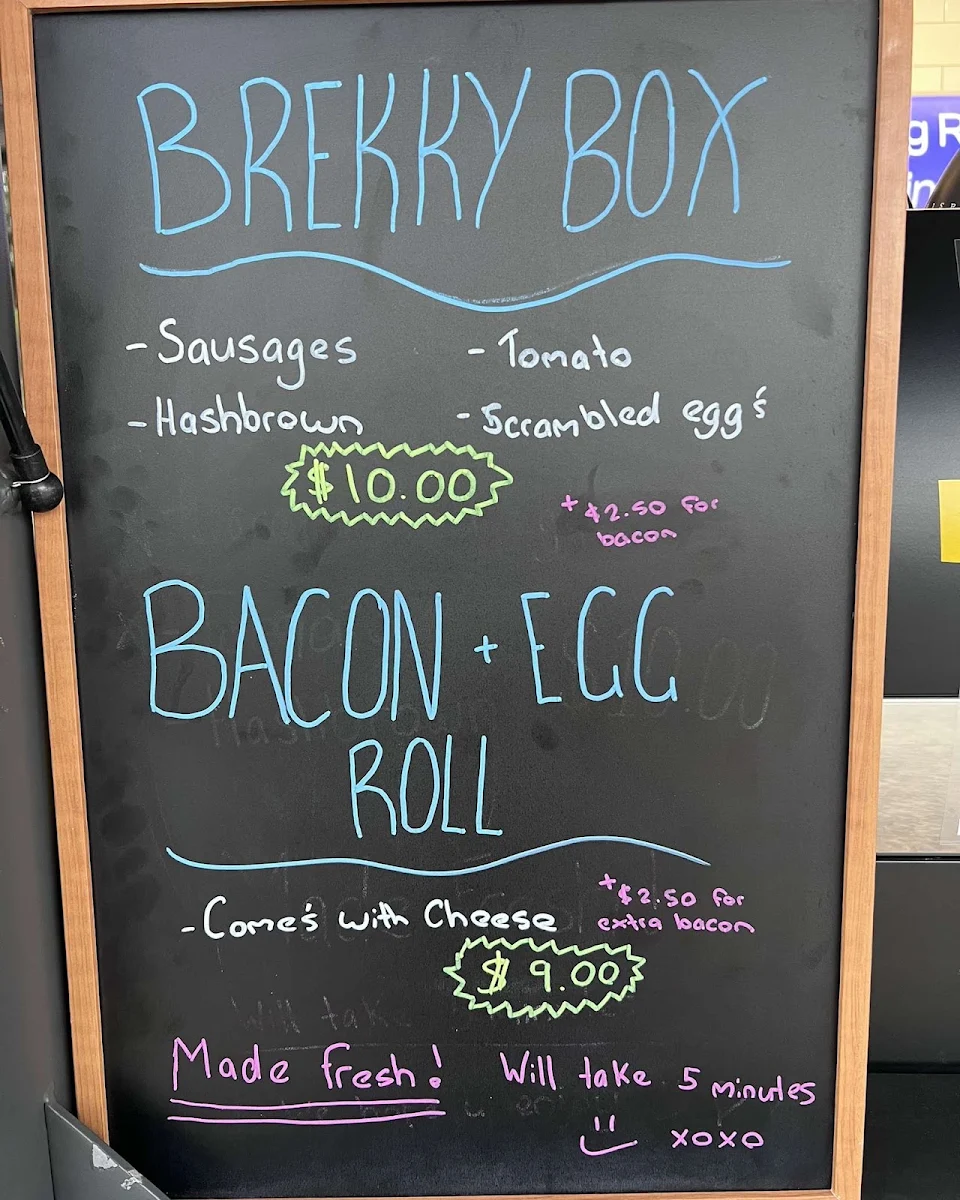 BREKKY BOX
- Sausages - Tomato
- Hashbrown - Scrambled egg's
$10.00
+ $2.50 for
bacon
BACON + EGG
ROLL
- Come's with Cheese
+ $2.50 for
extra bacon
$9.00
Made fresh! Will take 5 minutes
xoxo